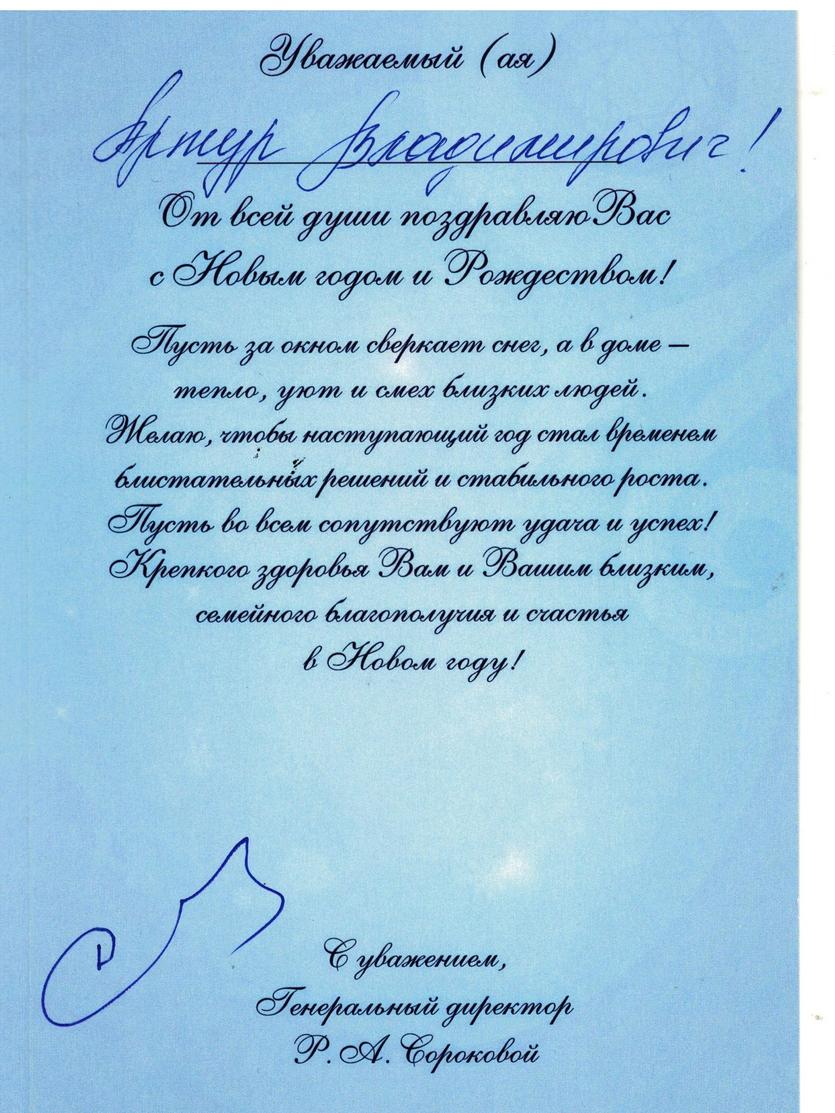 Уважаемый (ая)
Артур Владимирович!
От всей души поздравляю Вас
с Новым годом и Рождеством!
Пусть за окном сверкает снег, а в доме –
тепло, уют и смех близких людей.
Желаю, чтобы наступающий год стал временем
блистательных решений и стабильного роста.
Пусть во всем сопутствуют удача и успех!
Крепкого здоровья Вам и Вашим близким,
семейного благополучия и счастья
в Новом году!
С уважением,
Генеральный директор
Р. А. Сороковой